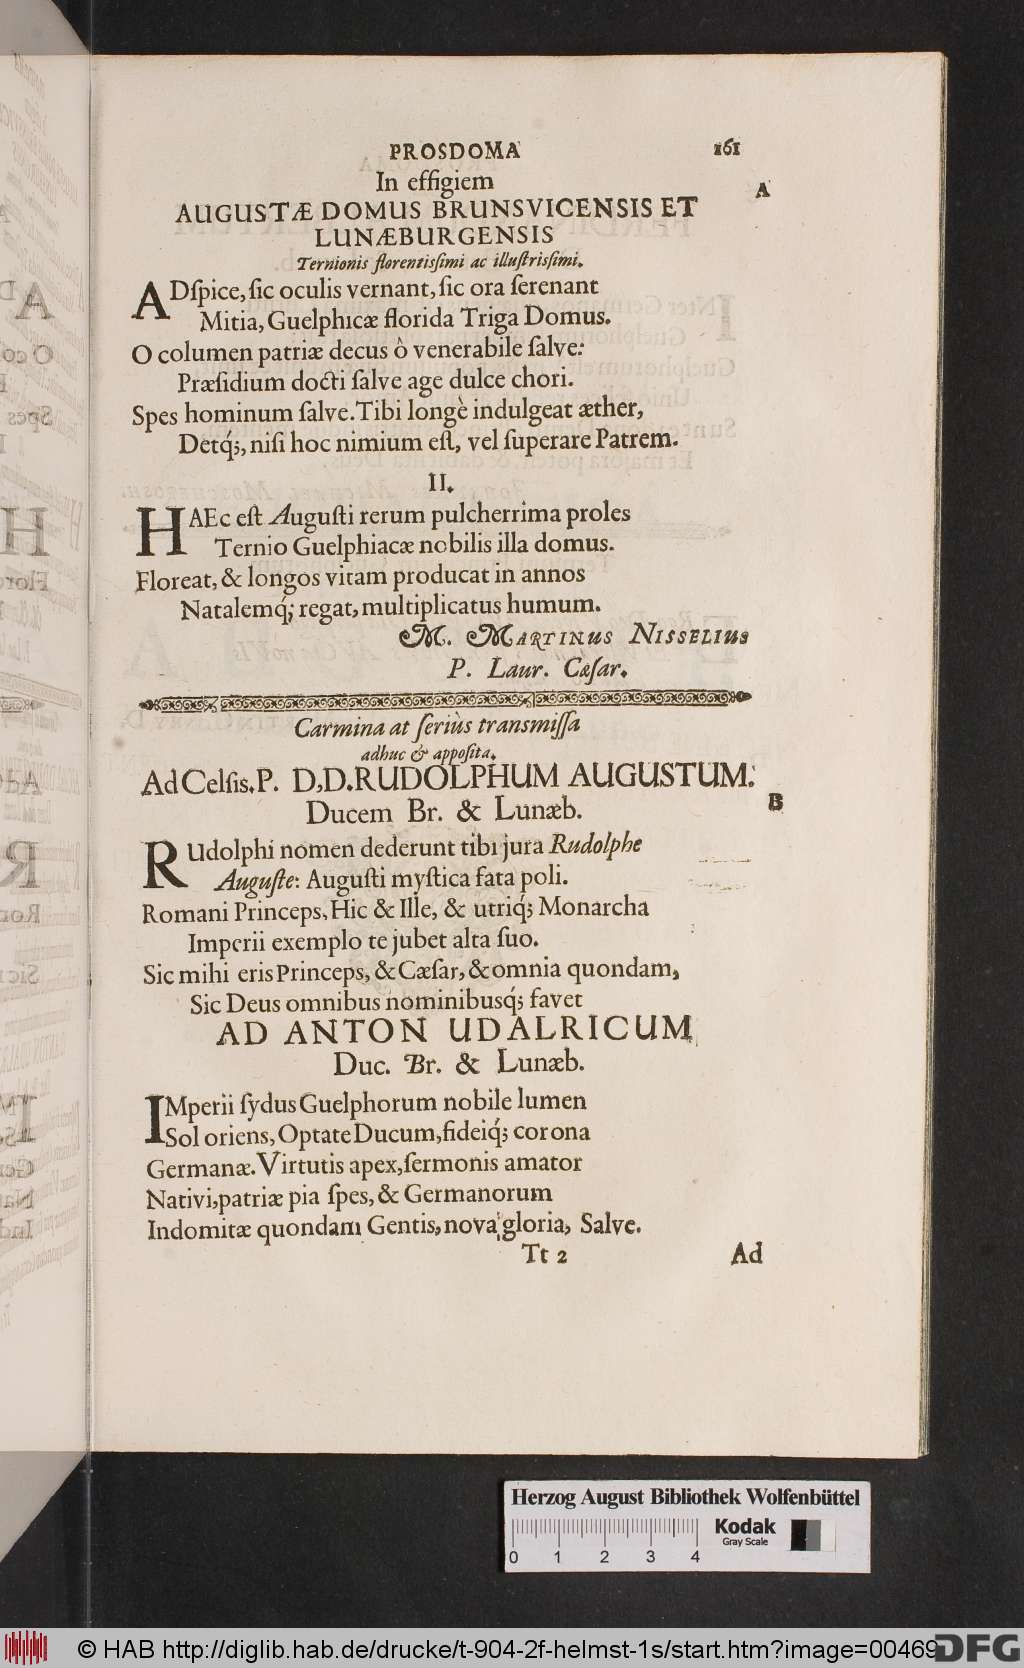 PROSDOMA 161
In effigiem
A
AUGUSTÆ DOMUS BRUNSVICENSIS ET
LUNÆBURGENSIS
Ternionis florentisſimi ac illuſtrisſimi.
ADſpice, ſic oculis vernant, ſic ora ſerenant
Mitia, Guelphicæ florida Triga Domus.
O columen patriæ decus ò venerabile ſalve:
Præſidium docti ſalve age dulce chori.
Spes hominum ſalve. Tibi longè indulgeat æther,
Detq́;, niſi hoc nimium eſt, vel ſuperare Patrem.
II.
HAEc eſt Auguſti rerum pulcherrima proles
Ternio Guelphiacæ nobilis illa domus.
Floreat, & longos vitam producat in annos
Natalemq́; regat, multiplicatus humum.
M. MARTINUS NISSELIUS
P. Laur. Cæſar.
Carmina at ſeriùs transmiſſa
adhuc & appoſita.
Ad Celſis. P. D,D. RUDOLPHUM AUGUSTUM.
Ducem Br. & Lunæb.
B
RUdolphi nomen dederunt tibi jura Rudolphe
Auguſte: Auguſti myſtica fata poli.
Romani Princeps, Hic & Ille, & utriq́; Monarcha
Imperii exemplo te jubet alta ſuo.
Sic mihi eris Princeps, & Cæſar, & omnia quondam,
Sic Deus omnibus nominibusq́; favet
AD ANTON UDALRICUM
Duc. Br. & Lunæb.
IMperii ſydus Guelphorum nobile lumen
Sol oriens, Optate Ducum, fideiq́; corona
Germanæ. Virtutis apex, ſermonis amator
Nativi, patriæ pia ſpes, & Germanorum
Indomitæ quondam Gentis, nova gloria, Salve.
Tt 2 Ad
Herzog August Bibliothek Wolfenbüttel
Kodak
Gray Scale
0 1 2 3 4
© HAB http://diglib.hab.de/drucke/t-904-2f-helmst-1s/start.htm?image=00469
DFG